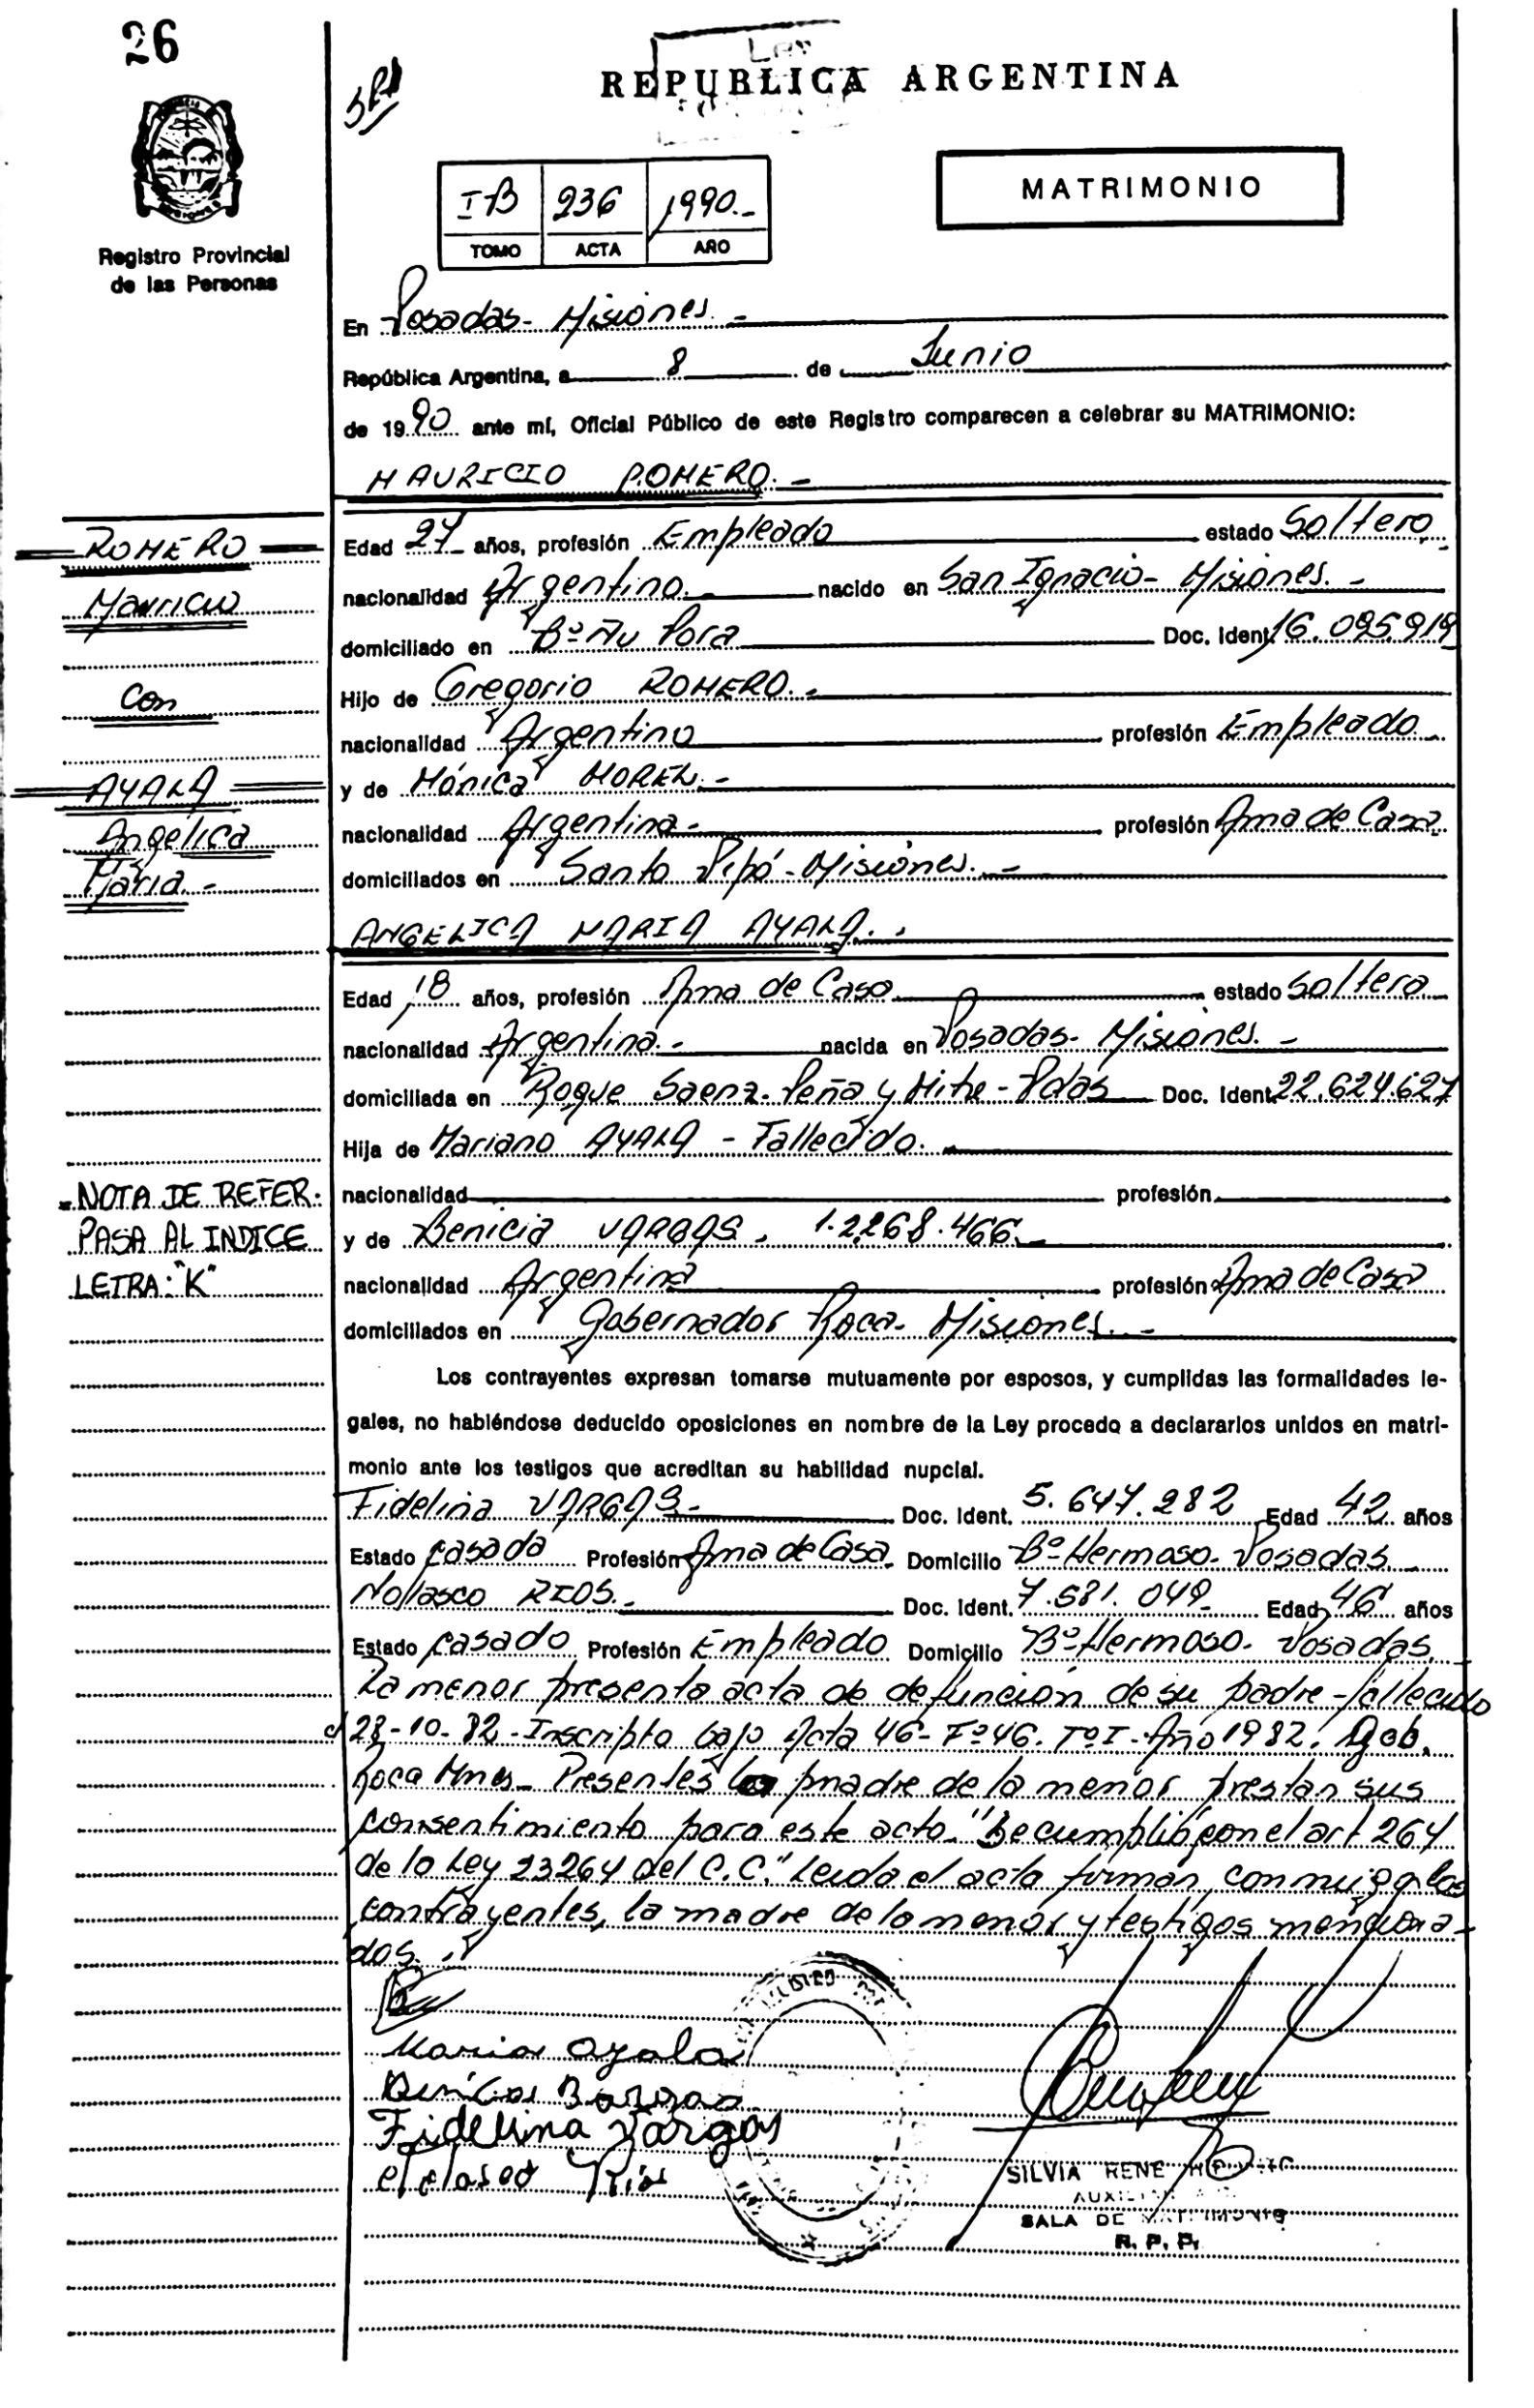 26
REPUBLICA ARGENTINA
MATRIMONIO
I-B 236 1990.-
TOMO ACTA AÑO
Registro Provincial
de las Personas
En Posadas- Misiones.-
República Argentina, a 8 de Junio
de 1990 ante mí, Oficial Público de este Registro comparecen a celebrar su MATRIMONIO:
MAURICIO ROMERO.-
ROMERO
Mauricio
Con
AYALA
Angélica
María.-
Edad 27 años, profesión Empleado estado Soltero
nacionalidad Argentino.- nacido en San Ignacio- Misiones.-
domiciliado en Bº Ñu Pora Doc. Ident. 16.095919
Hijo de Gregorio ROMERO.-
nacionalidad Argentino profesión Empleado
y de Mónica MOREL.-
nacionalidad Argentina.- profesión Ama de Casa
domiciliados en Santo Pipó-Misiones.-
ANGELICA MARIA AYALA.-
Edad 18 años, profesión Ama de Casa estado Soltera
nacionalidad Argentina.- nacida en Posadas- Misiones.-
domiciliada en Roque Saenz Peña y Mitre- Pdas Doc. Ident. 22.624.627
Hija de Mariano AYALA - Fallecido.
nacionalidad profesión
y de Benicia VARGAS. 1.2268.466.-
nacionalidad Argentina profesión Ama de Casa
domiciliados en Gobernador Roca- Misiones.-
NOTA DE REFER.
PASA AL INDICE
LETRA: "K"
Los contrayentes expresan tomarse mutuamente por esposos, y cumplidas las formalidades le-
gales, no habiéndose deducido oposiciones en nombre de la Ley procedo a declararlos unidos en matri-
monio ante los testigos que acreditan su habilidad nupcial.
Fidelina VARGAS.- Doc. Ident. 5.647.282 Edad 42 años
Estado casada Profesión Ama de Casa Domicilio Bº Hermoso- Posadas
Nollasco RIOS.- Doc. Ident. 7.581.049 Edad 46 años
Estado casado Profesión Empleado Domicilio Bº Hermoso- Posadas
La menor presenta acta de defunción de su padre-fallecido
el 28-10-82-Inscripto bajo Acta 46- Fº46. TºI-Año 1982. Gob.
Roca Mnes- Presentes la madre de la menor prestan sus
consentimiento para este acto. "Se cumplió con el art 264
de la Ley 23264 del C.C." Leida el acta firman conmigo los
contrayentes, la madre de la menor y testigos menciona-
dos.
Maria Ayala
Benicia Bargas
Fidelina Vargas
Rios
SILVIA RENE
SALA DE MATRIMONIO
R. P. P.